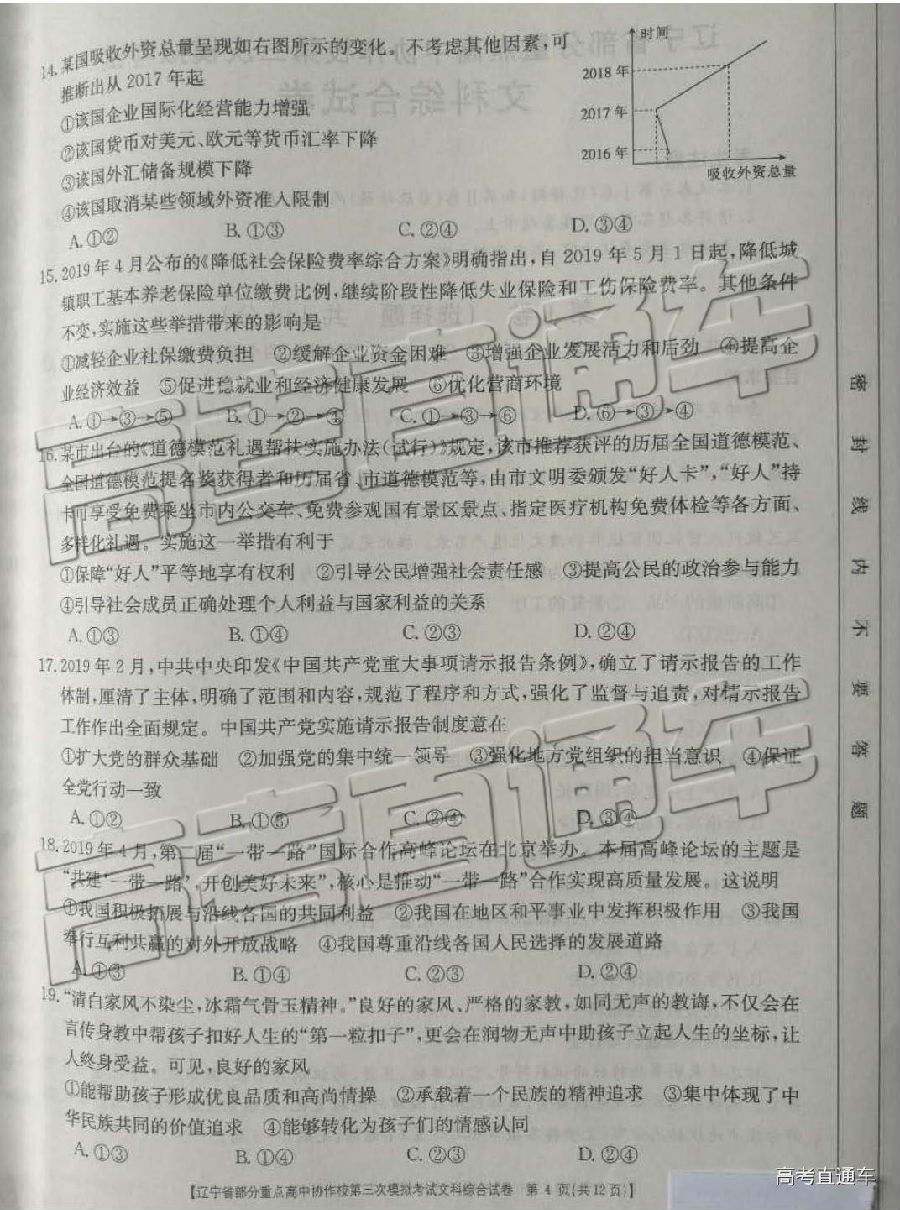 14.某国吸收外资总量呈现如右图所示的变化。不考虑其他因素,可
推断出从2017年起
①该国企业国际化经营能力增强
②该国货币对美元、欧元等货币汇率下降
③该国外汇储备规模下降
④该国取消某些领域外资准入限制
A.①② B.①③ C.②④ D.③④
时间
2018年
2017年
2016年
吸收外资总量
15.2019年4月公布的《降低社会保险费率综合方案》明确指出,自2019年5月1日起,降低城
镇职工基本养老保险单位缴费比例,继续阶段性降低失业保险和工伤保险费率。其他条件
不变,实施这些举措带来的影响是
①减轻企业社保缴费负担 ②缓解企业资金困难 ③增强企业发展活力和后劲 ④提高企
业经济效益 ⑤促进稳就业和经济健康发展 ⑥优化营商环境
A.①→③→⑤ B.①→②→④ C.①→③→⑥ D.⑥→③→④
16.某市出台的《道德模范礼遇帮扶实施办法(试行)》规定,该市推荐获评的历届全国道德模范、
全国道德模范提名奖获得者和历届省、市道德模范等,由市文明委颁发“好人卡”,“好人”持
卡可享受免费乘坐市内公交车、免费参观国有景区景点、指定医疗机构免费体检等各方面、
多样化礼遇。实施这一举措有利于
①保障“好人”平等地享有权利 ②引导公民增强社会责任感 ③提高公民的政治参与能力
④引导社会成员正确处理个人利益与国家利益的关系
A.①③ B.①④ C.②③ D.②④
17.2019年2月,中共中央印发《中国共产党重大事项请示报告条例》,确立了请示报告的工作
体制,厘清了主体,明确了范围和内容,规范了程序和方式,强化了监督与追责,对请示报告
工作作出全面规定。中国共产党实施请示报告制度意在
①扩大党的群众基础 ②加强党的集中统一领导 ③强化地方党组织的担当意识 ④保证
全党行动一致
A.①② B.①③ C.②④ D.③④
18.2019年4月,第二届“一带一路”国际合作高峰论坛在北京举办。本届高峰论坛的主题是
“共建‘一带一路’,开创美好未来”,核心是推动“一带一路”合作实现高质量发展。这说明
①我国积极拓展与沿线各国的共同利益 ②我国在地区和平事业中发挥积极作用 ③我国
奉行互利共赢的对外开放战略 ④我国尊重沿线各国人民选择的发展道路
A.①③ B.①④ C.②③ D.②④
19.“清白家风不染尘,冰霜气骨玉精神。”良好的家风、严格的家教,如同无声的教诲,不仅会在
言传身教中帮孩子扣好人生的“第一粒扣子”,更会在润物无声中助孩子立起人生的坐标,让
人终身受益。可见,良好的家风
①能帮助孩子形成优良品质和高尚情操 ②承载着一个民族的精神追求 ③集中体现了中
华民族共同的价值追求 ④能够转化为孩子们的情感认同
A.①③ B.①④ C.②③ D.②④
【辽宁省部分重点高中协作校第三次模拟考试文科综合试卷 第4页(共12页)】
密封线内不要答题
高考直通车
高考直通车
高考直通车